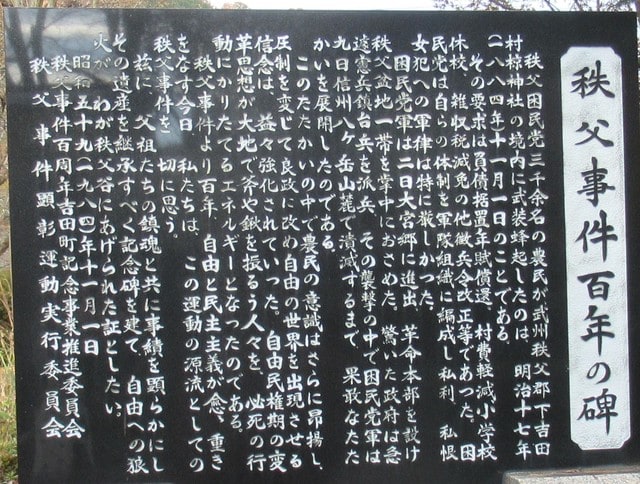 秩父事件百年の碑
秩父困民党三千余名の農民が武州秩父郡下吉田
村椋神社の境内に武装蜂起したのは、明治十七年
(一八八四年)十一月一日のことである。
その要求は負債据置年賦償還、村費軽減小学校
休校、雑収税減免の他徴兵令改正等であった。困
民党は自らの体制を軍隊組織に編成し私利、私恨
女犯への軍律は特に厳しかった。
困民党軍は二日大宮郷に進出、革命本部を設け
秩父盆地一帯を掌中におさめた。驚いた政府は急
遽憲兵鎮台兵を派兵、その襲撃の中で困民党軍は
九日信州八ヶ岳山麓で潰滅するまで、果敢なたた
かいを展開したのである。
このたたかいの中で、農民の意識はさらに昂揚し、
圧制を変じて良政に改め自由の世界を出現させる
信念は、益々強化されていった。自由民権期の変
革思想が大地で斧や鍬を振るう人々を、必死の行
動にかりたてるエネルギーとなったのである。
秩父事件より百年、自由と民主主義が念、重き
をなす今日、私たちは、この運動の源流としての
秩父事件を、切に思う。
茲に、父祖たちの鎮魂と共に事績を顕らかにし
その遺産を継承すべく記念碑を建て、自由への狼
火がわが秩父谷にあげられた証としたい。
昭和五十九(一九八四)年十一月一日
秩父事件百周年吉田町記念事業推進委員会
秩父事件顕彰運動実行委員会